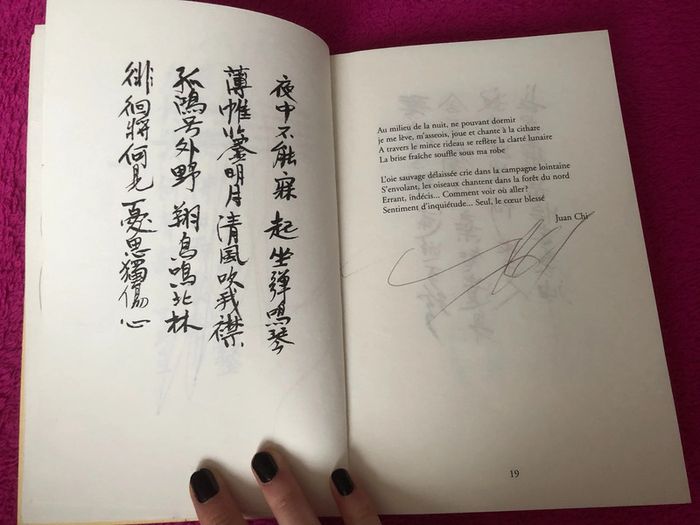 夜中不能寐 起坐彈鳴琴
薄帷鑒明月 清風吹我襟
孤鴻号外野 翔鳥鳴北林
徘徊將何見 憂思獨傷心
Au milieu de la nuit, ne pouvant dormir
je me lève, m'asseois, joue et chante à la cithare
A travers le mince rideau se reflète la clarté lunaire
La brise fraîche souffle sous ma robe
L'oie sauvage délaissée crie dans la campagne lointaine
S'envolant, les oiseaux chantent dans la forêt du nord
Errant, indécis... Comment voir où aller?
Sentiment d'inquiétude... Seul, le cœur blessé
Juan Chi
19